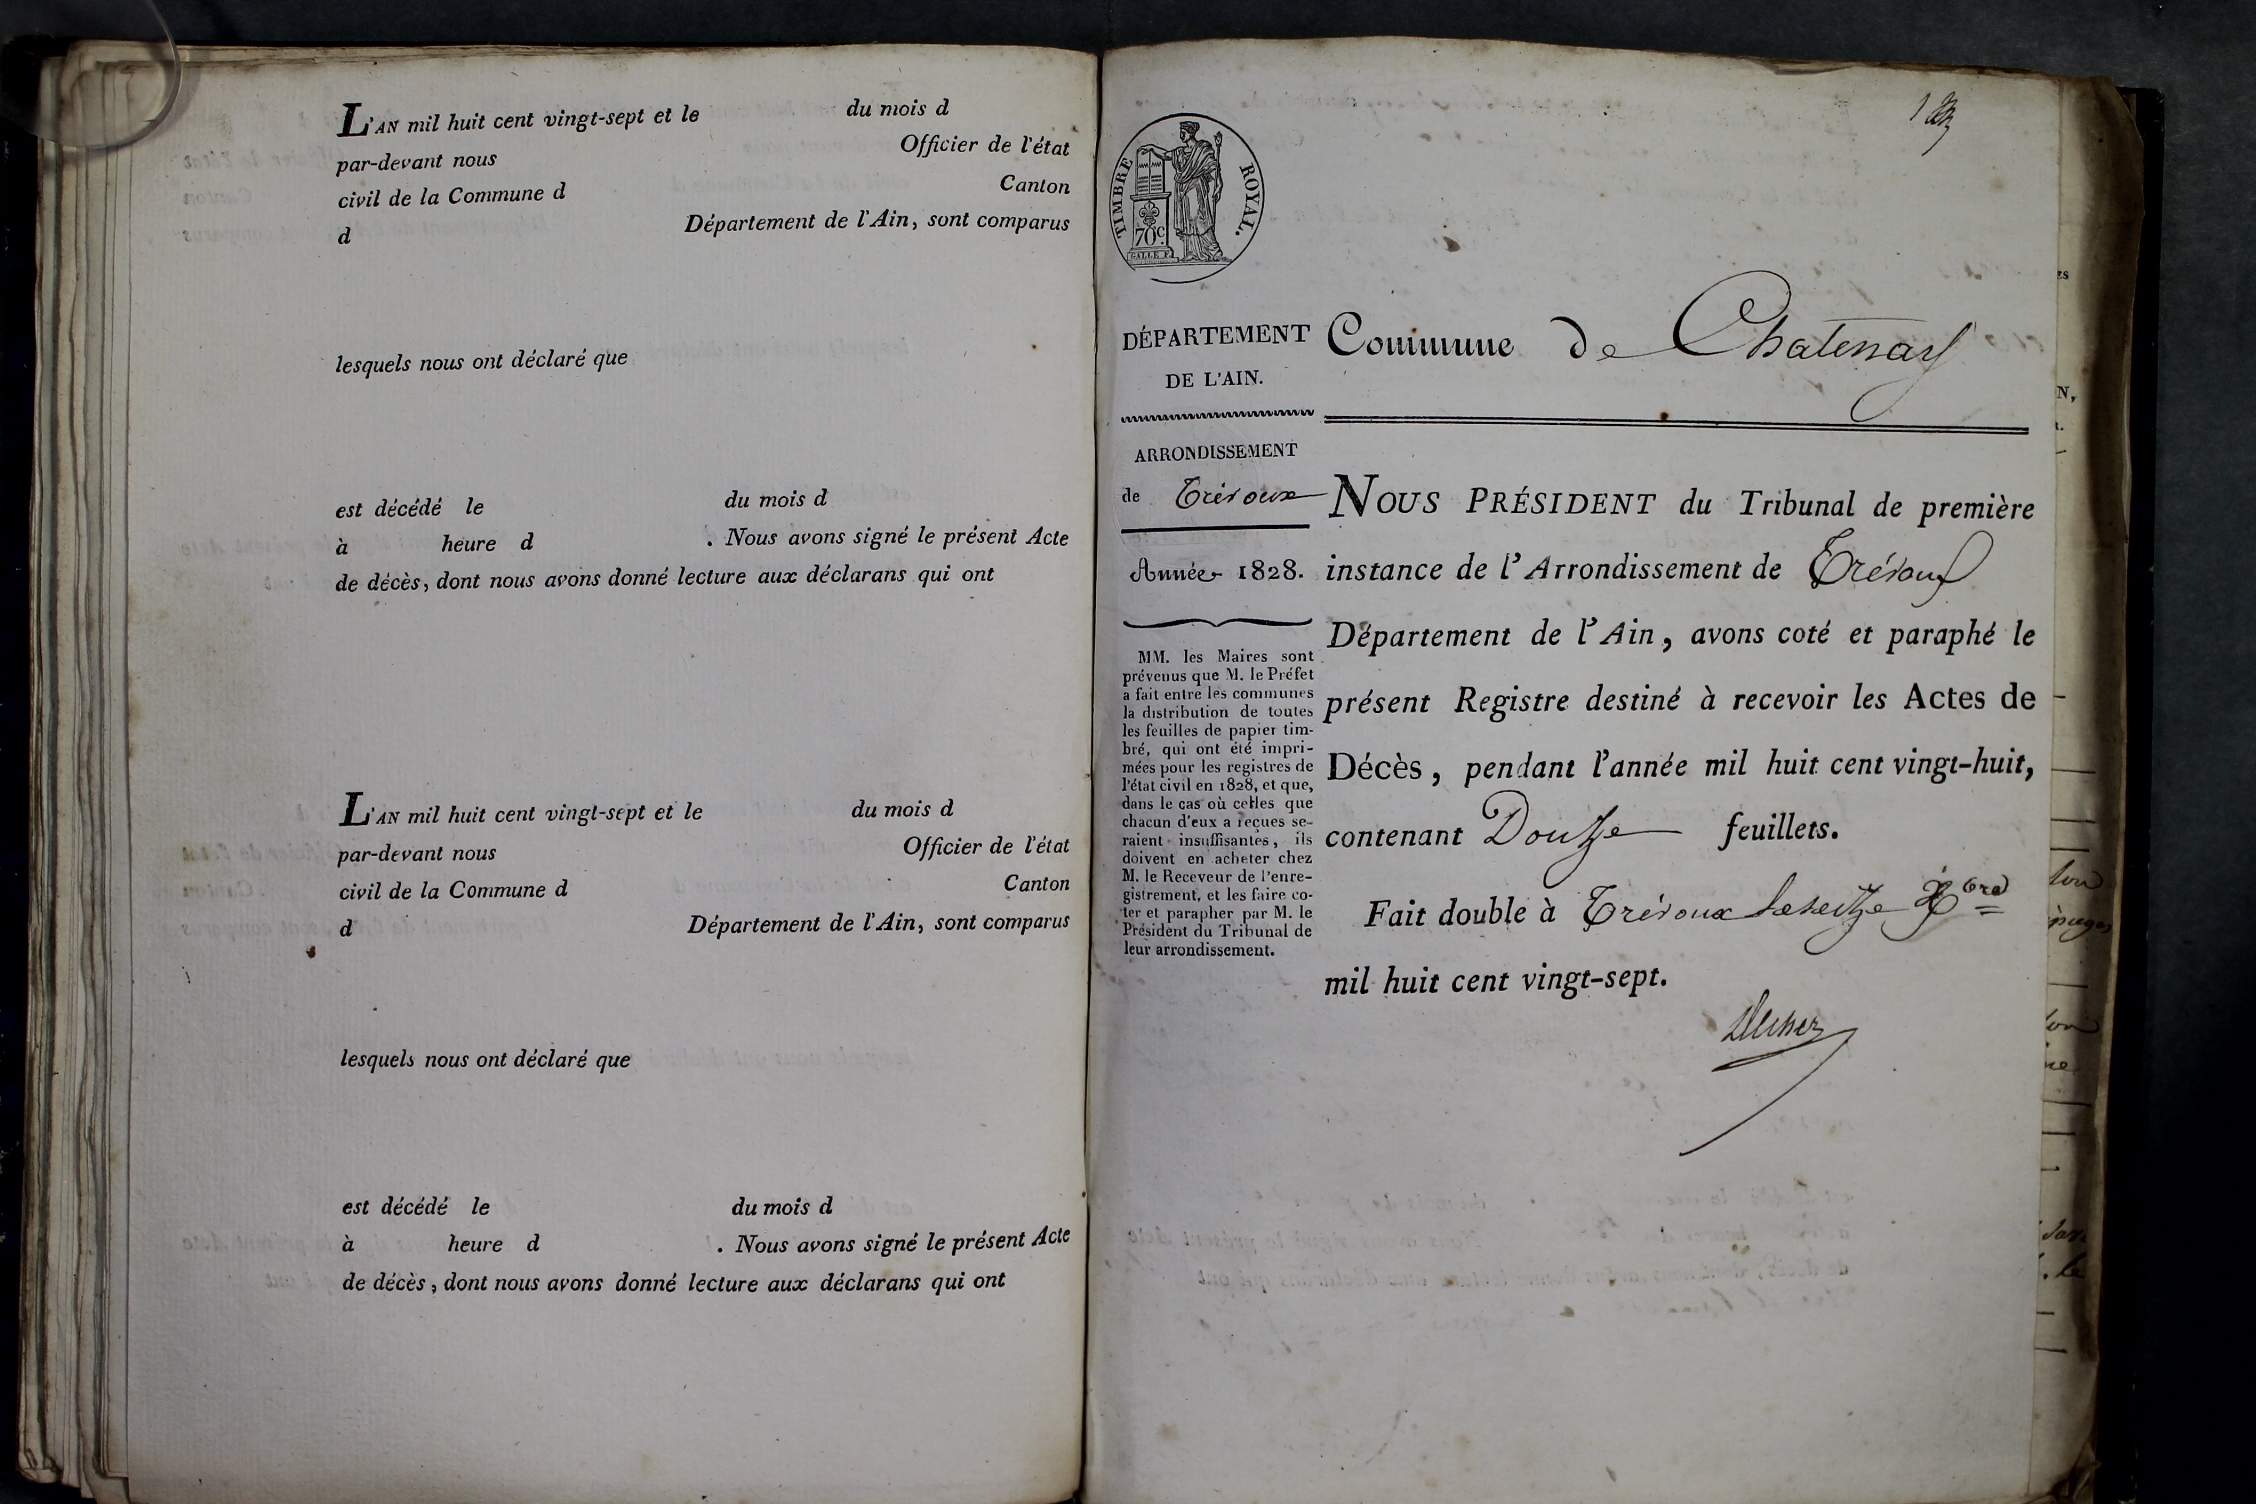 L'AN mil huit cent vingt-sept et le du mois d
par-devant nous Officier de l'état
civil de la Commune d Canton
d Département de l'Ain, sont comparus
lesquels nous ont déclaré que
est décédé le du mois d
à heure d . Nous avons signé le présent Acte
de décès, dont nous avons donné lecture aux déclarans qui ont
L'AN mil huit cent vingt-sept et le du mois d
par-devant nous Officier de l'état
civil de la Commune d Canton
d Département de l'Ain, sont comparus
lesquels nous ont déclaré que
est décédé le du mois d
à heure d . Nous avons signé le présent Acte
de décès, dont nous avons donné lecture aux déclarans qui ont
1
TIMBRE ROYAL.
70c.
GALLE F.
DÉPARTEMENT
DE L'AIN.
ARRONDISSEMENT
de Trévoux
Année 1828.
MM. les Maires sont
prévenus que M. le Préfet
a fait entre les communes
la distribution de toutes
les feuilles de papier tim-
bré, qui ont été impri-
mées pour les registres de
l'état civil en 1828, et que,
dans le cas où celles que
chacun d'eux a reçues se-
raient insuffisantes, ils
doivent en acheter chez
M. le Receveur de l'enre-
gistrement, et les faire co-
ter et parapher par M. le
Président du Tribunal de
leur arrondissement.
Commune de Chatenay
NOUS PRÉSIDENT du Tribunal de première
instance de l'Arrondissement de Trévoux
Département de l'Ain, avons coté et paraphé le
présent Registre destiné à recevoir les Actes de
Décès, pendant l'année mil huit cent vingt-huit,
contenant Douze feuillets.
Fait double à Trévoux le seize Xbre
mil huit cent vingt-sept.